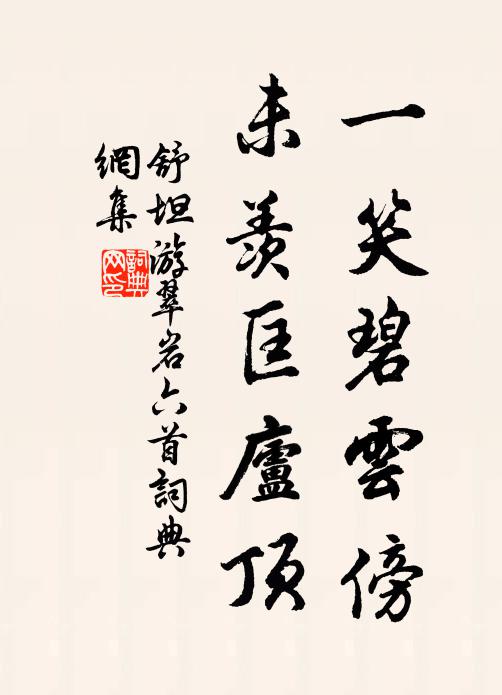 一笑碧雲傍
未羨匡廬頂
舒坦游翠岩六首詞典
網集
詞典
网印